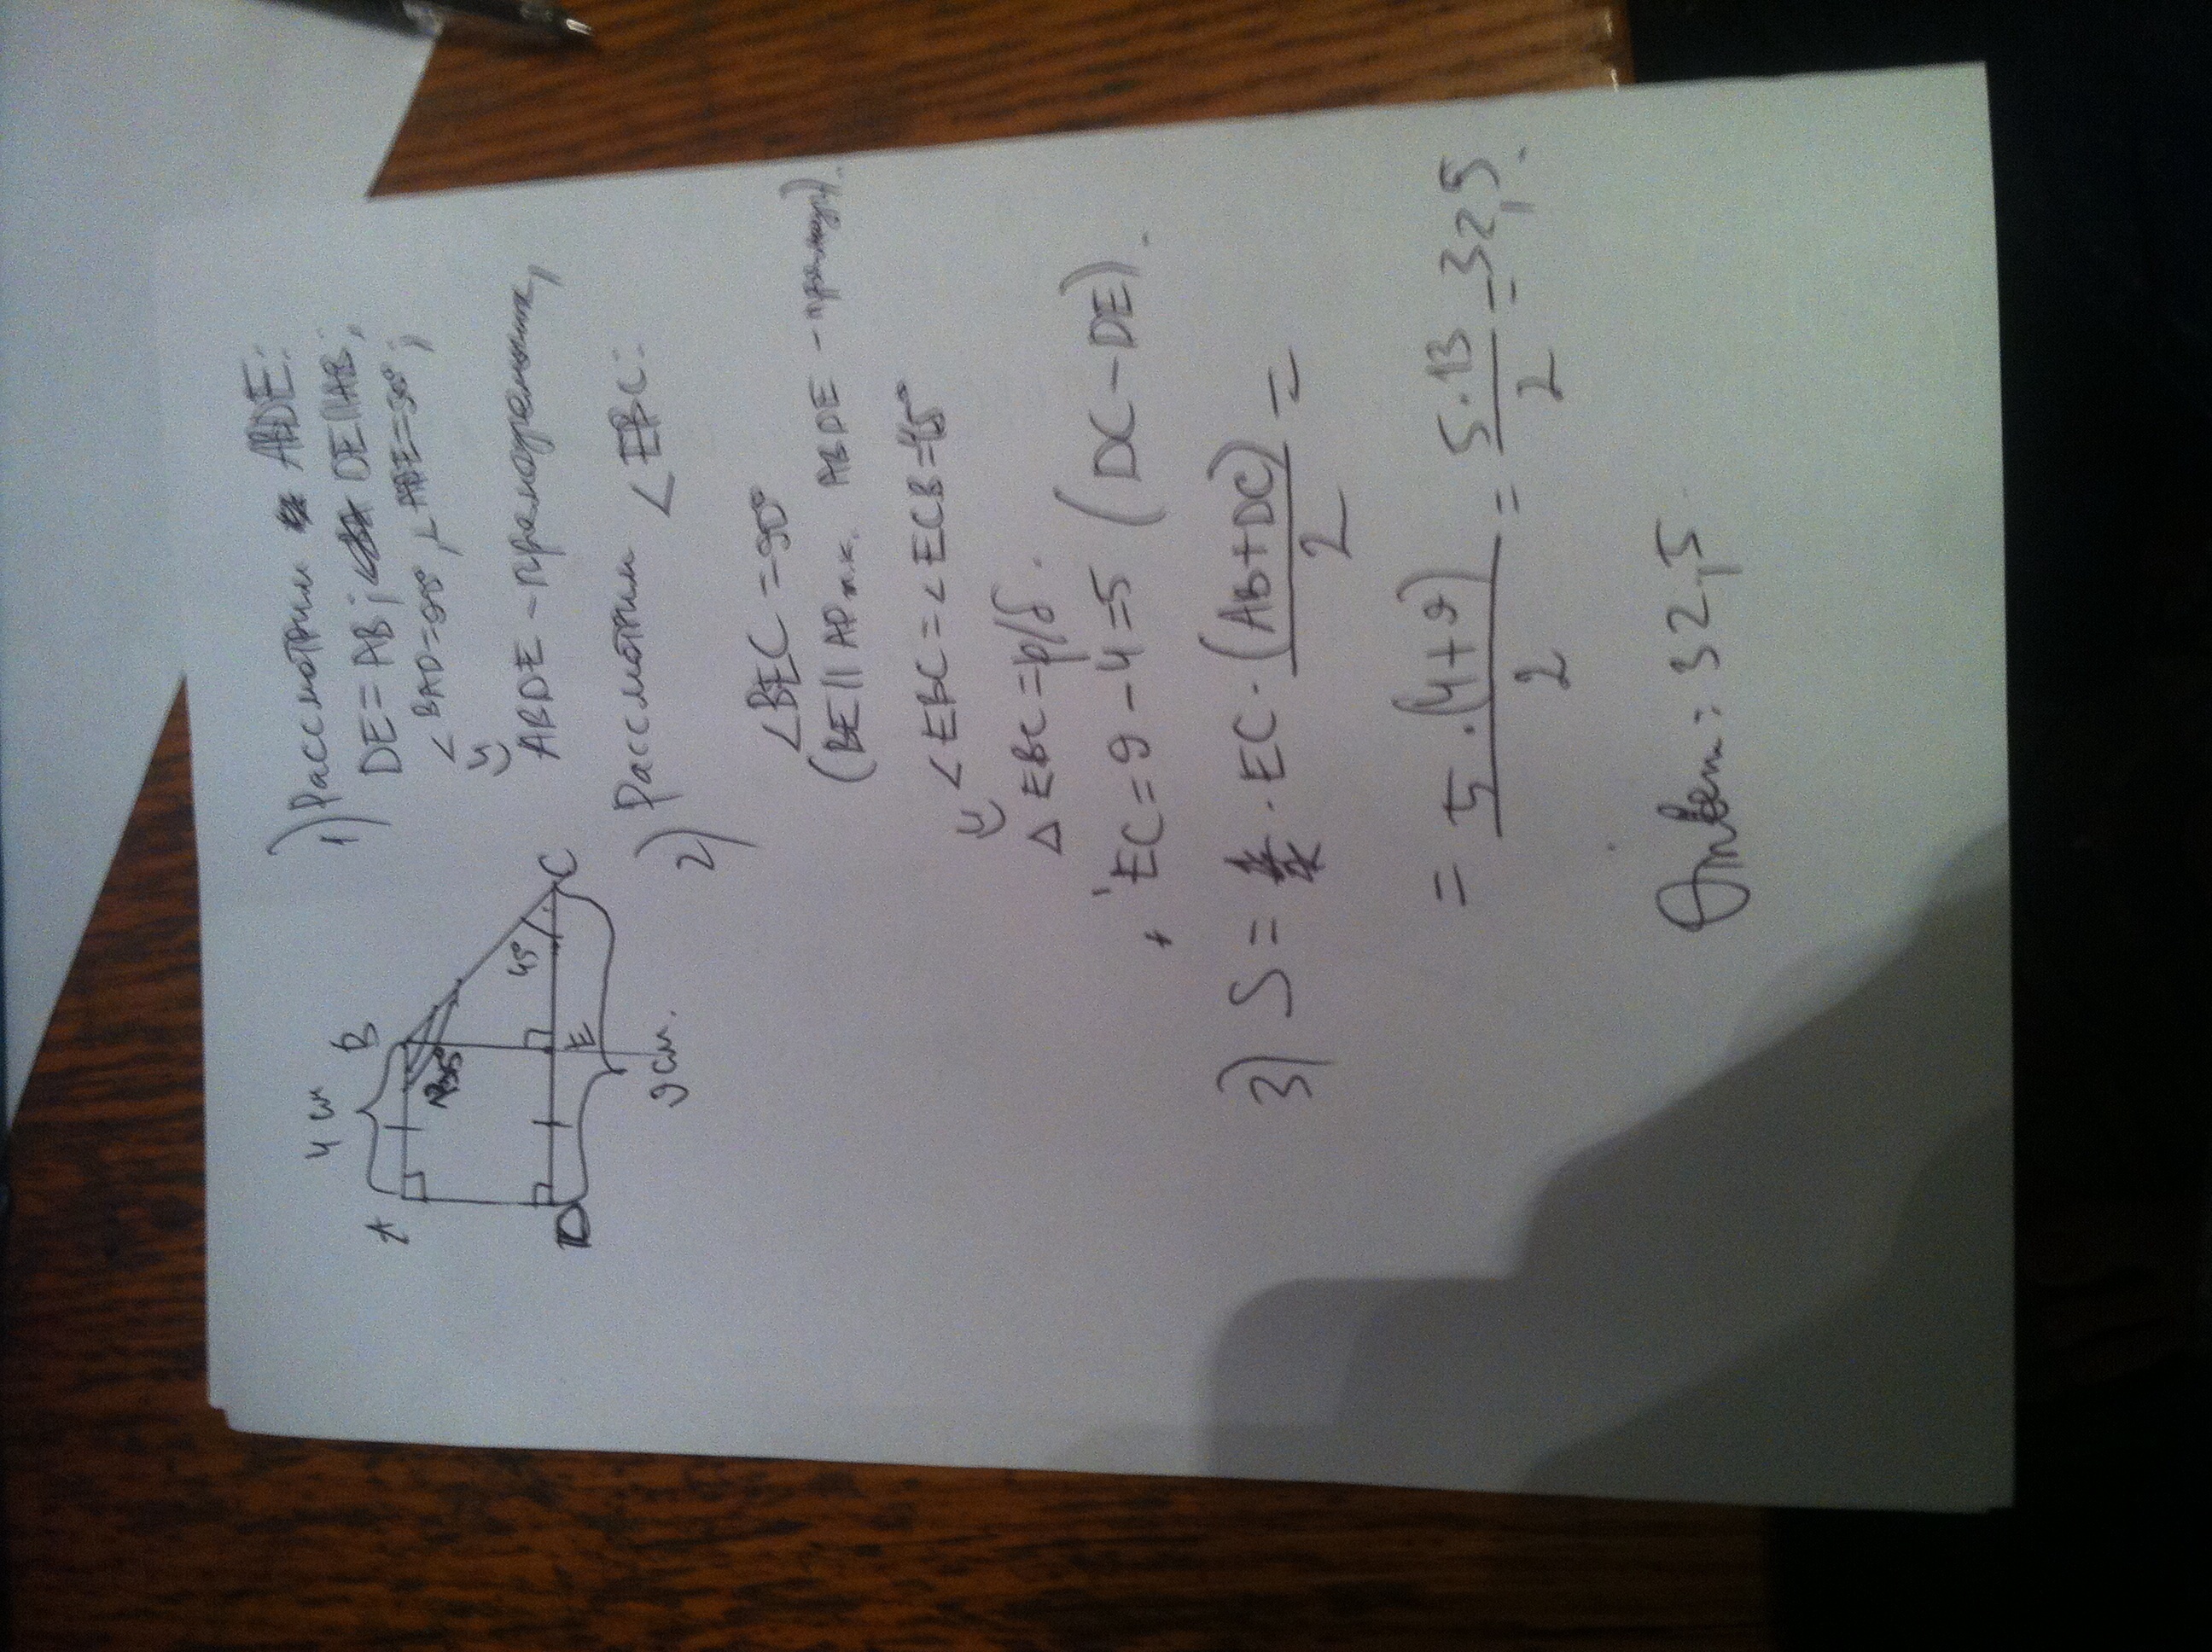 4 см
A B
135°
45°
D E C
9 см.
1) Рассмотрим ABDE:
DE = AB; DE || AB;
∠BAD = 90°, ∠ADE = 90°;
ABDE – прямоугольник,
2) Рассмотрим ∠EBC:
∠BEC = 90°
(BE || AD т.к. ABDE – прямоуг.).
∠EBC = ∠ECB = 45°
Δ EBC = р/б.
EC = 9 – 4 = 5 (DC – DE).
3) S = · EC · (AB + DC) / 2 =
= 5 · (4 + 9) / 2 = 5 · 13 / 2 = 32,5.
Ответ: 32,5